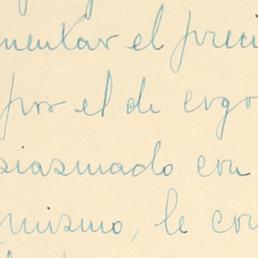 mentar el preci
por el de ergo
siasmado con
mismo, le con